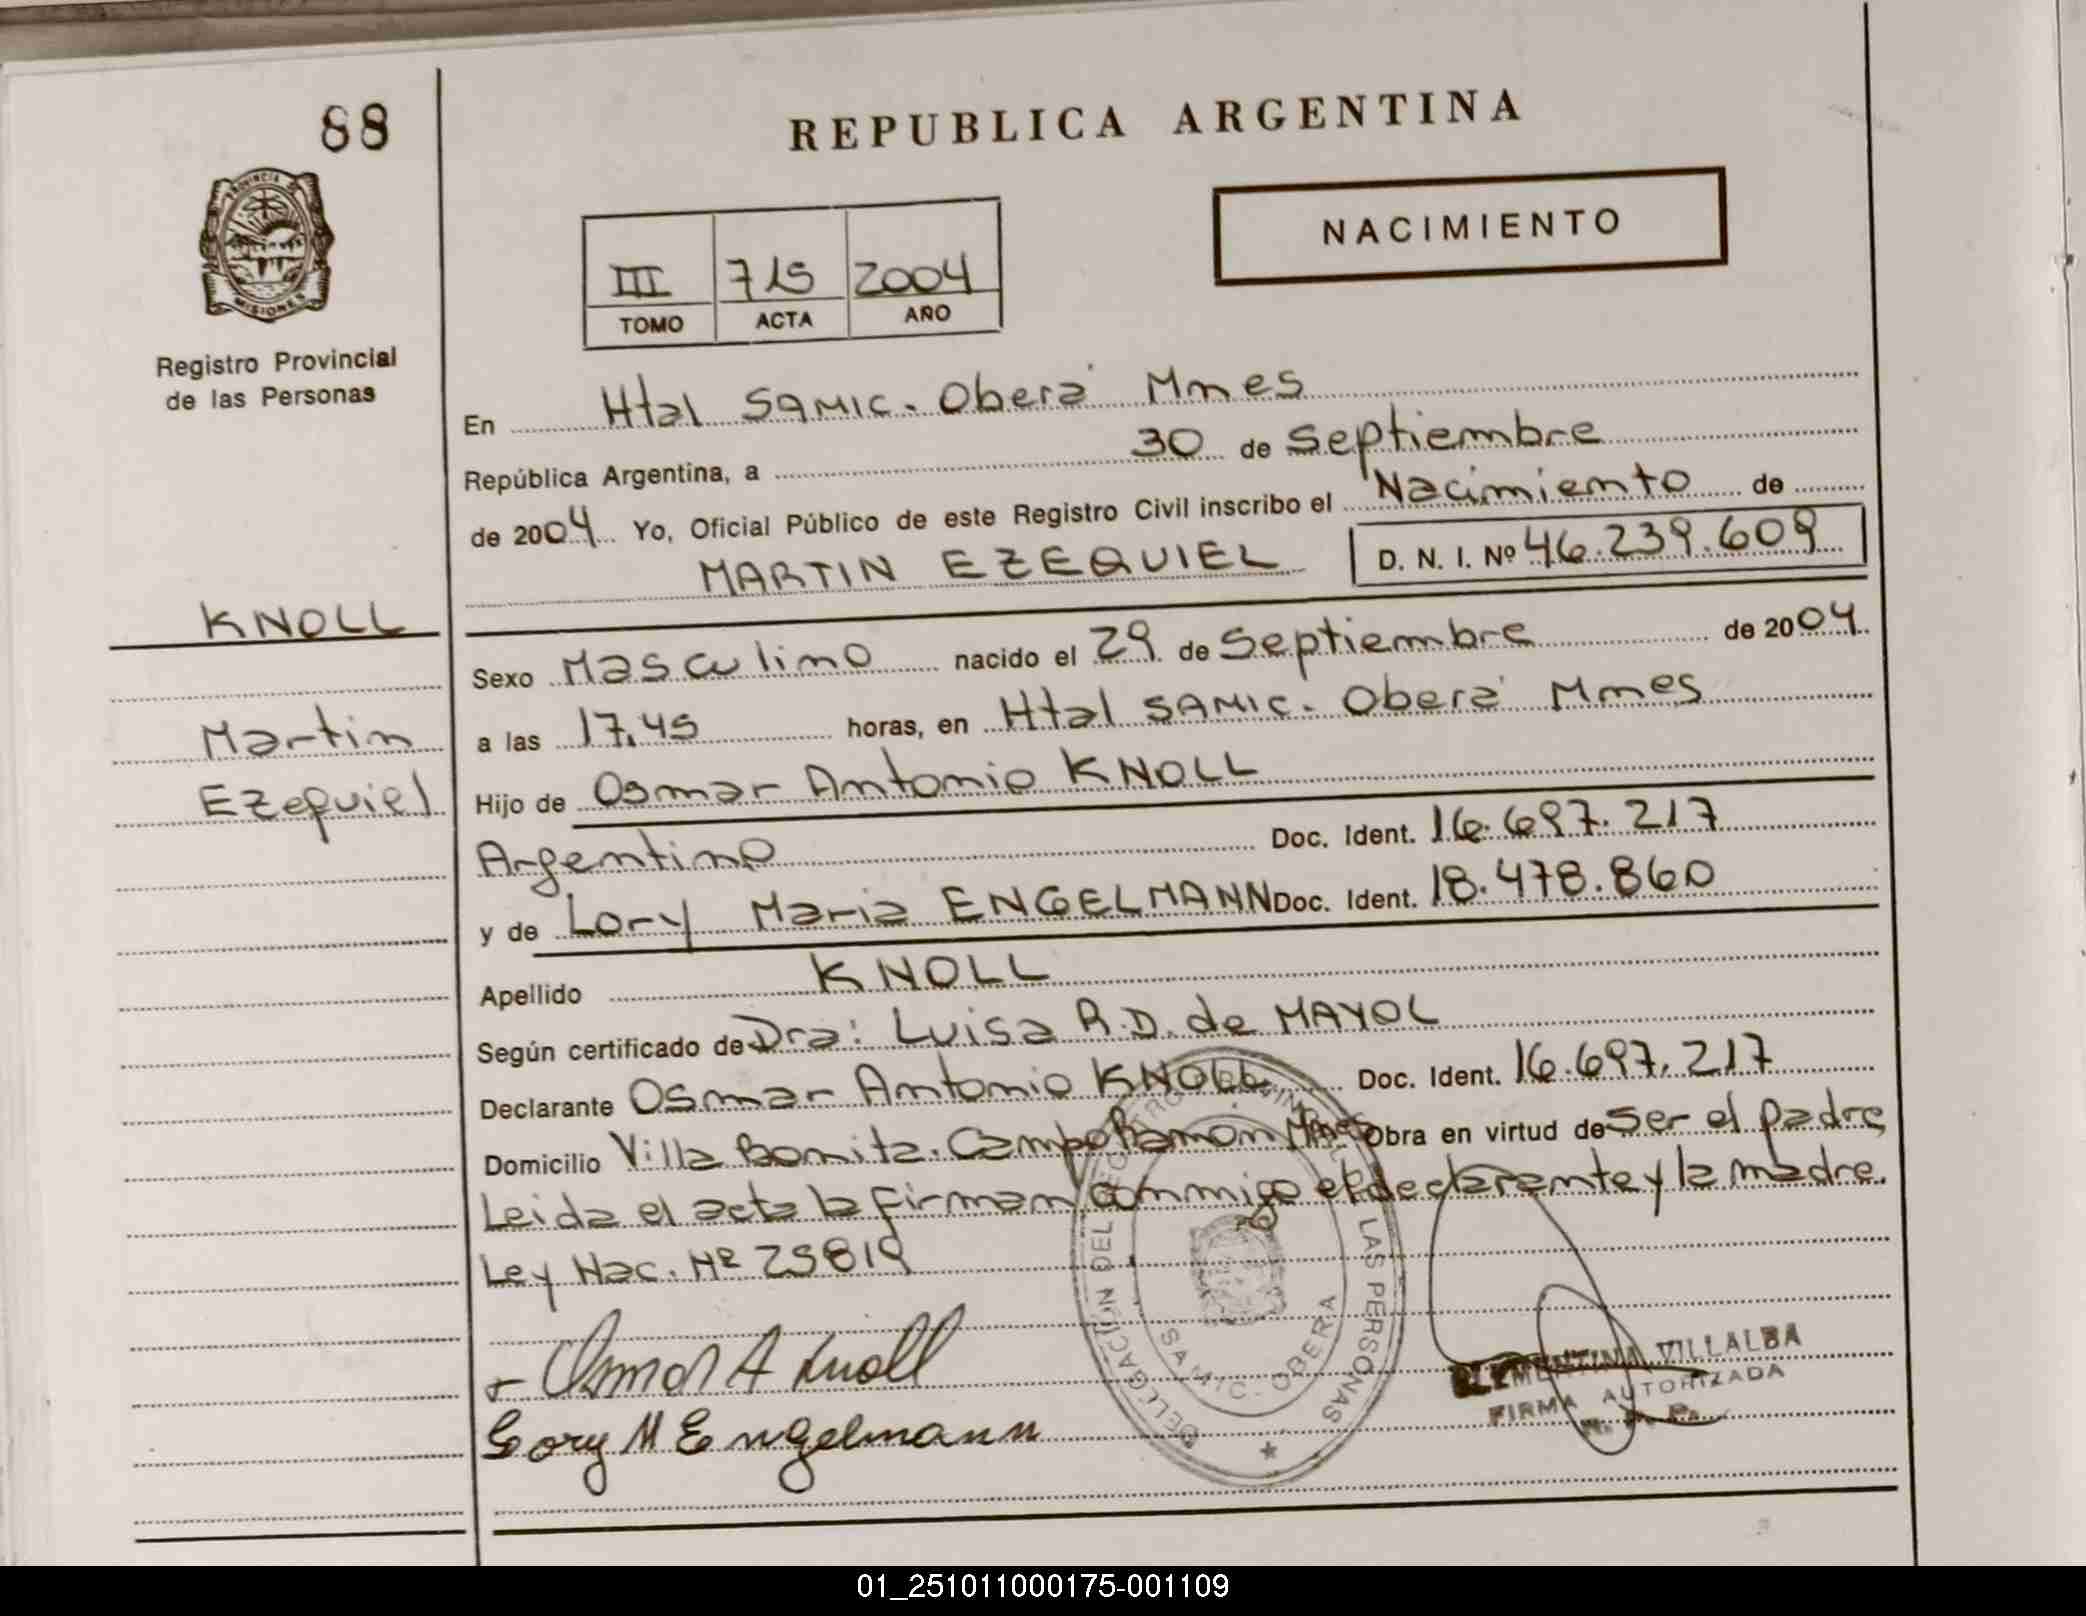 88
REPUBLICA ARGENTINA
PROVINCIA DE
MISIONES
Registro Provincial
de las Personas
NACIMIENTO
III 715 2004
TOMO ACTA AÑO
En Htal SAMIC. Oberá Mnes
República Argentina, a 30 de Septiembre
de 2004 Yo, Oficial Público de este Registro Civil inscribo el Nacimiento de
MARTIN EZEQUIEL D. N. I. Nº 46.239.609
KNOLL
Martin
Ezequiel
Sexo Masculino nacido el 29 de Septiembre de 2004
a las 17,45 horas, en Htal SAMIC. Oberá Mnes
Hijo de Osmar Antonio KNOLL
Argentino Doc. Ident. 16.697.217
y de Lory Maria ENGELMANN Doc. Ident. 18.478.860
Apellido KNOLL
Según certificado de Dra: Luisa R.D. de MAYOL
Declarante Osmar Antonio KNOLL Doc. Ident. 16.697.217
Domicilio Villa Bonita. Campo Ramon Mnes Obra en virtud de Ser el padre
Leida el acta la firman conmigo el declarante y la madre.
Ley Nac. Nº 25819
Osmar A Knoll
Lory M Engelmann
DELEGACIÓN DEL REGISTRO PROVINCIAL DE LAS PERSONAS
SAMIC. OBERA
CLEMENTINA VILLALBA
FIRMA AUTORIZADA
01_251011000175-001109